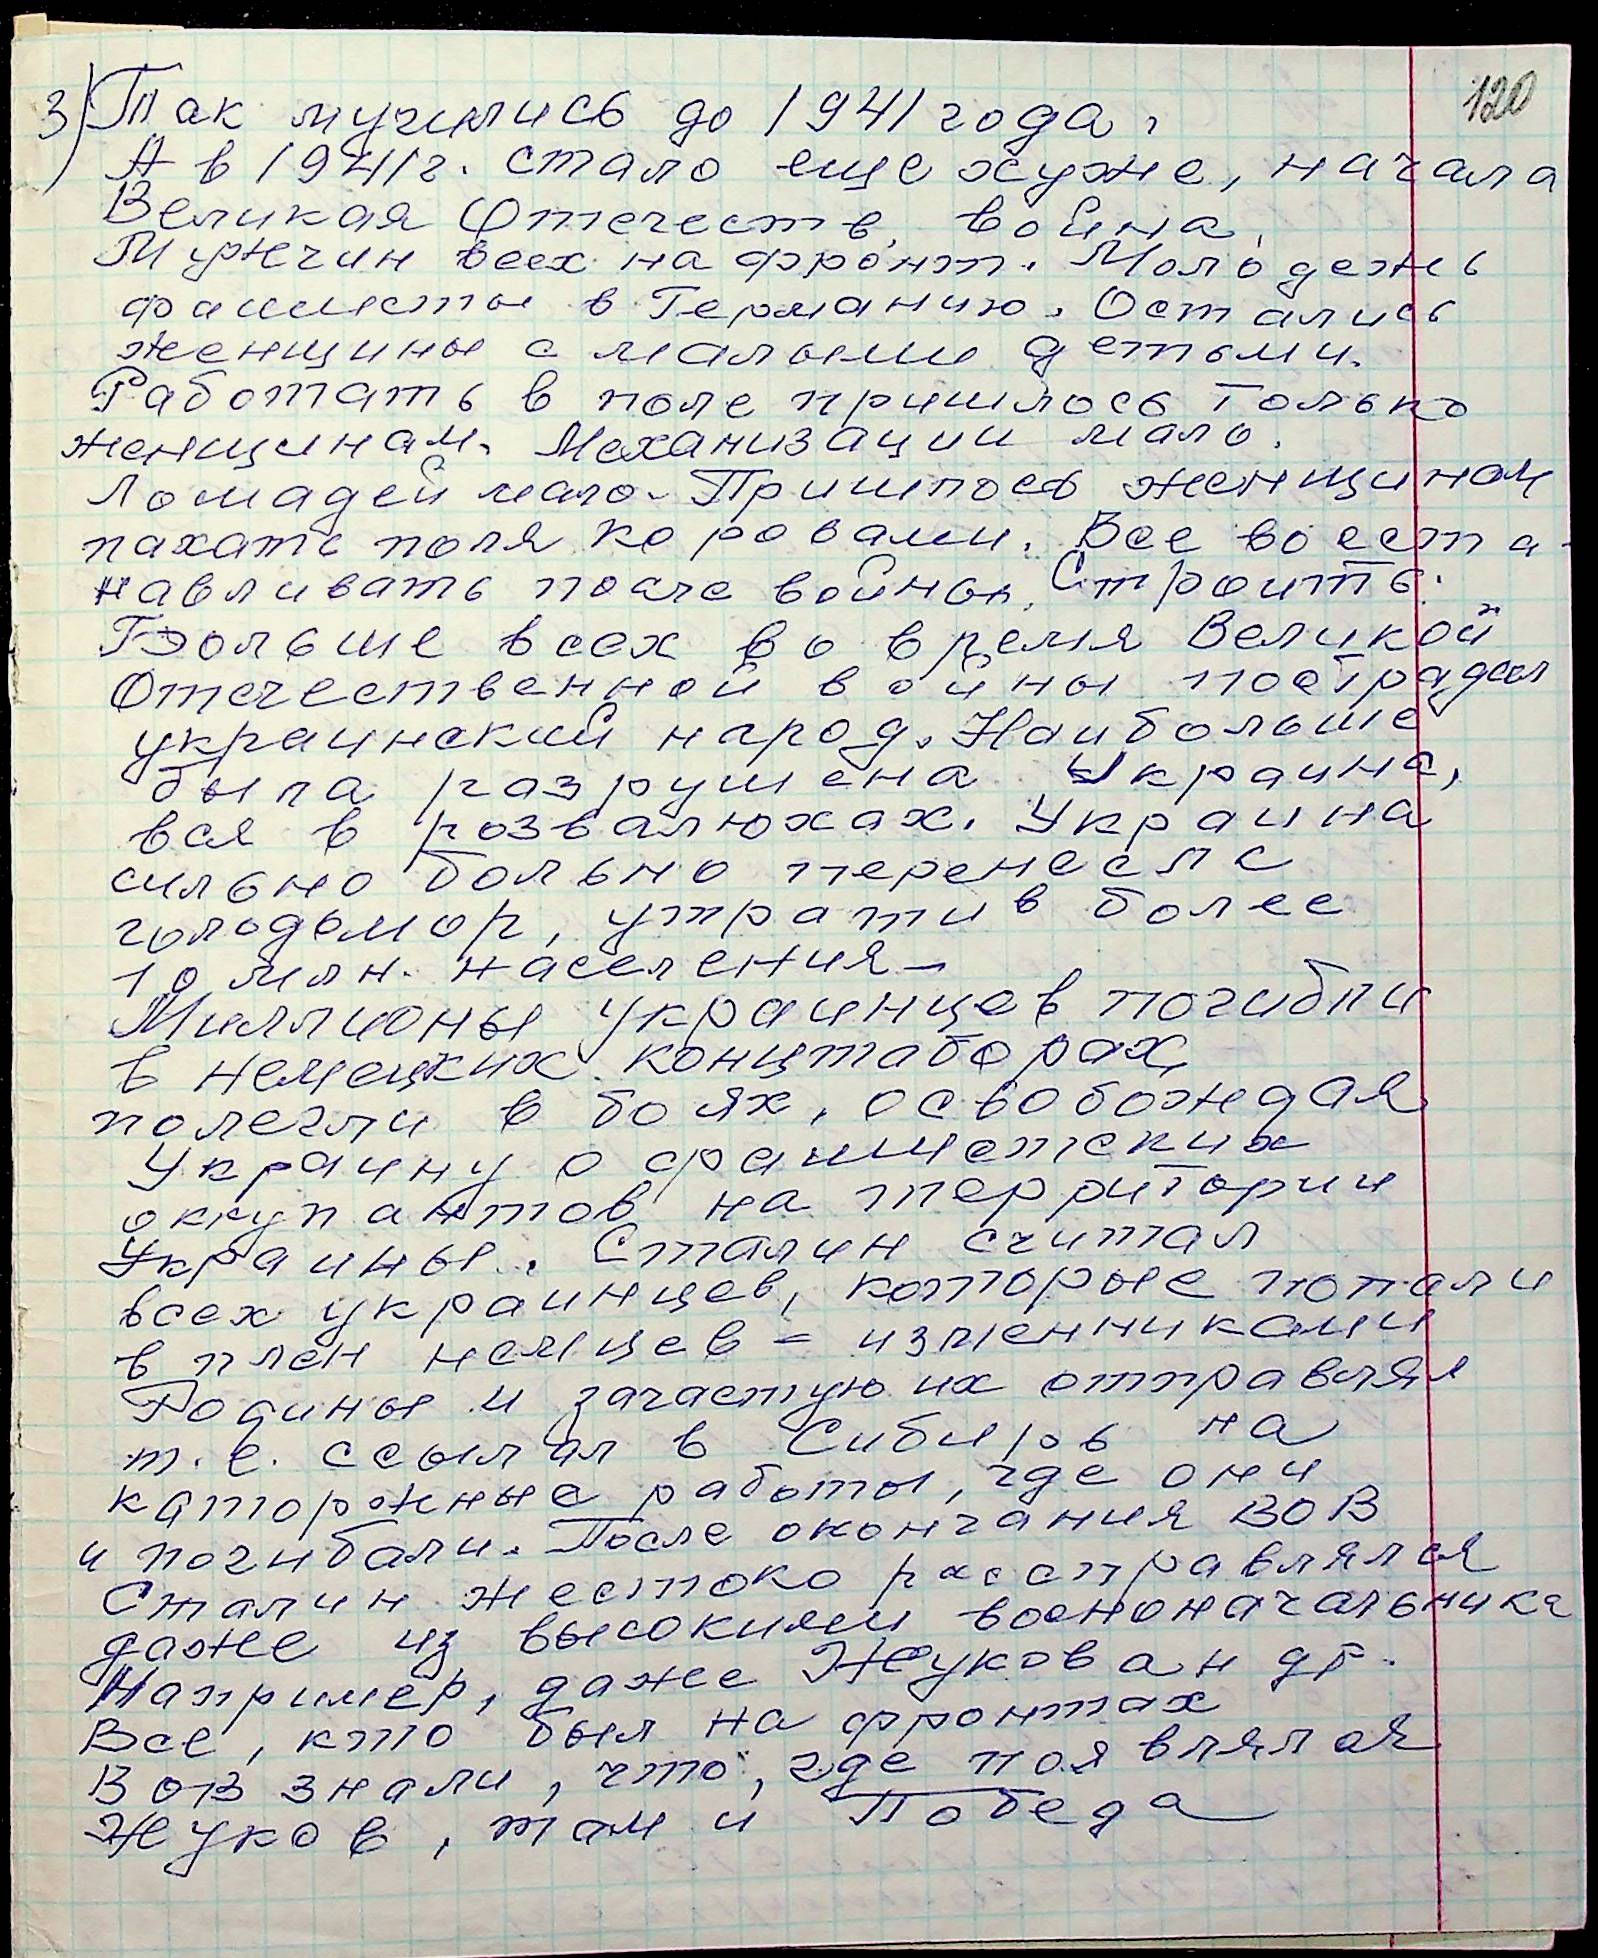 120
3) Так мучились до 1941 года.
А в 1941 г. стало еще хуже, начала
Великая Отечеств. война.
Мужчин всех на фронт. Молодежь
фашисты в Германию. Остались
женщины с малыми детьми.
Работать в поле пришлось только
женщинам. Механизации мало.
Лошадей мало. Пришлось женщинам
пахать поля коровами. Все восста-
навливать после войны. Строить.
Больше всех во время Великой
Отечественной войны пострадал
украинский народ. Наибольше
была разрушена Украина,
вся в розвалюхах. Украина
сильно больно перенесла
голодомор, утратив более
10 млн. населения.
Миллионы украинцев погибли
в немецких концтаборах,
полегли в боях, освобождая
Украину о фашистских
оккупантов на территории
Украины. Сталин считал
всех украинцев, которые попали
в плен немцев - изменниками
Родины и зачастую их отправлял
т. е. ссылал в Сибирь на
каторжные работы, где они
и погибали. После окончания ВОВ
Сталин жестоко расправлялся
даже из высокими военоначальника
Например, даже Жуков а н др.
Все, кто был на фронтах
ВОВ знали, что, где появлялся
Жуков, там и Победа